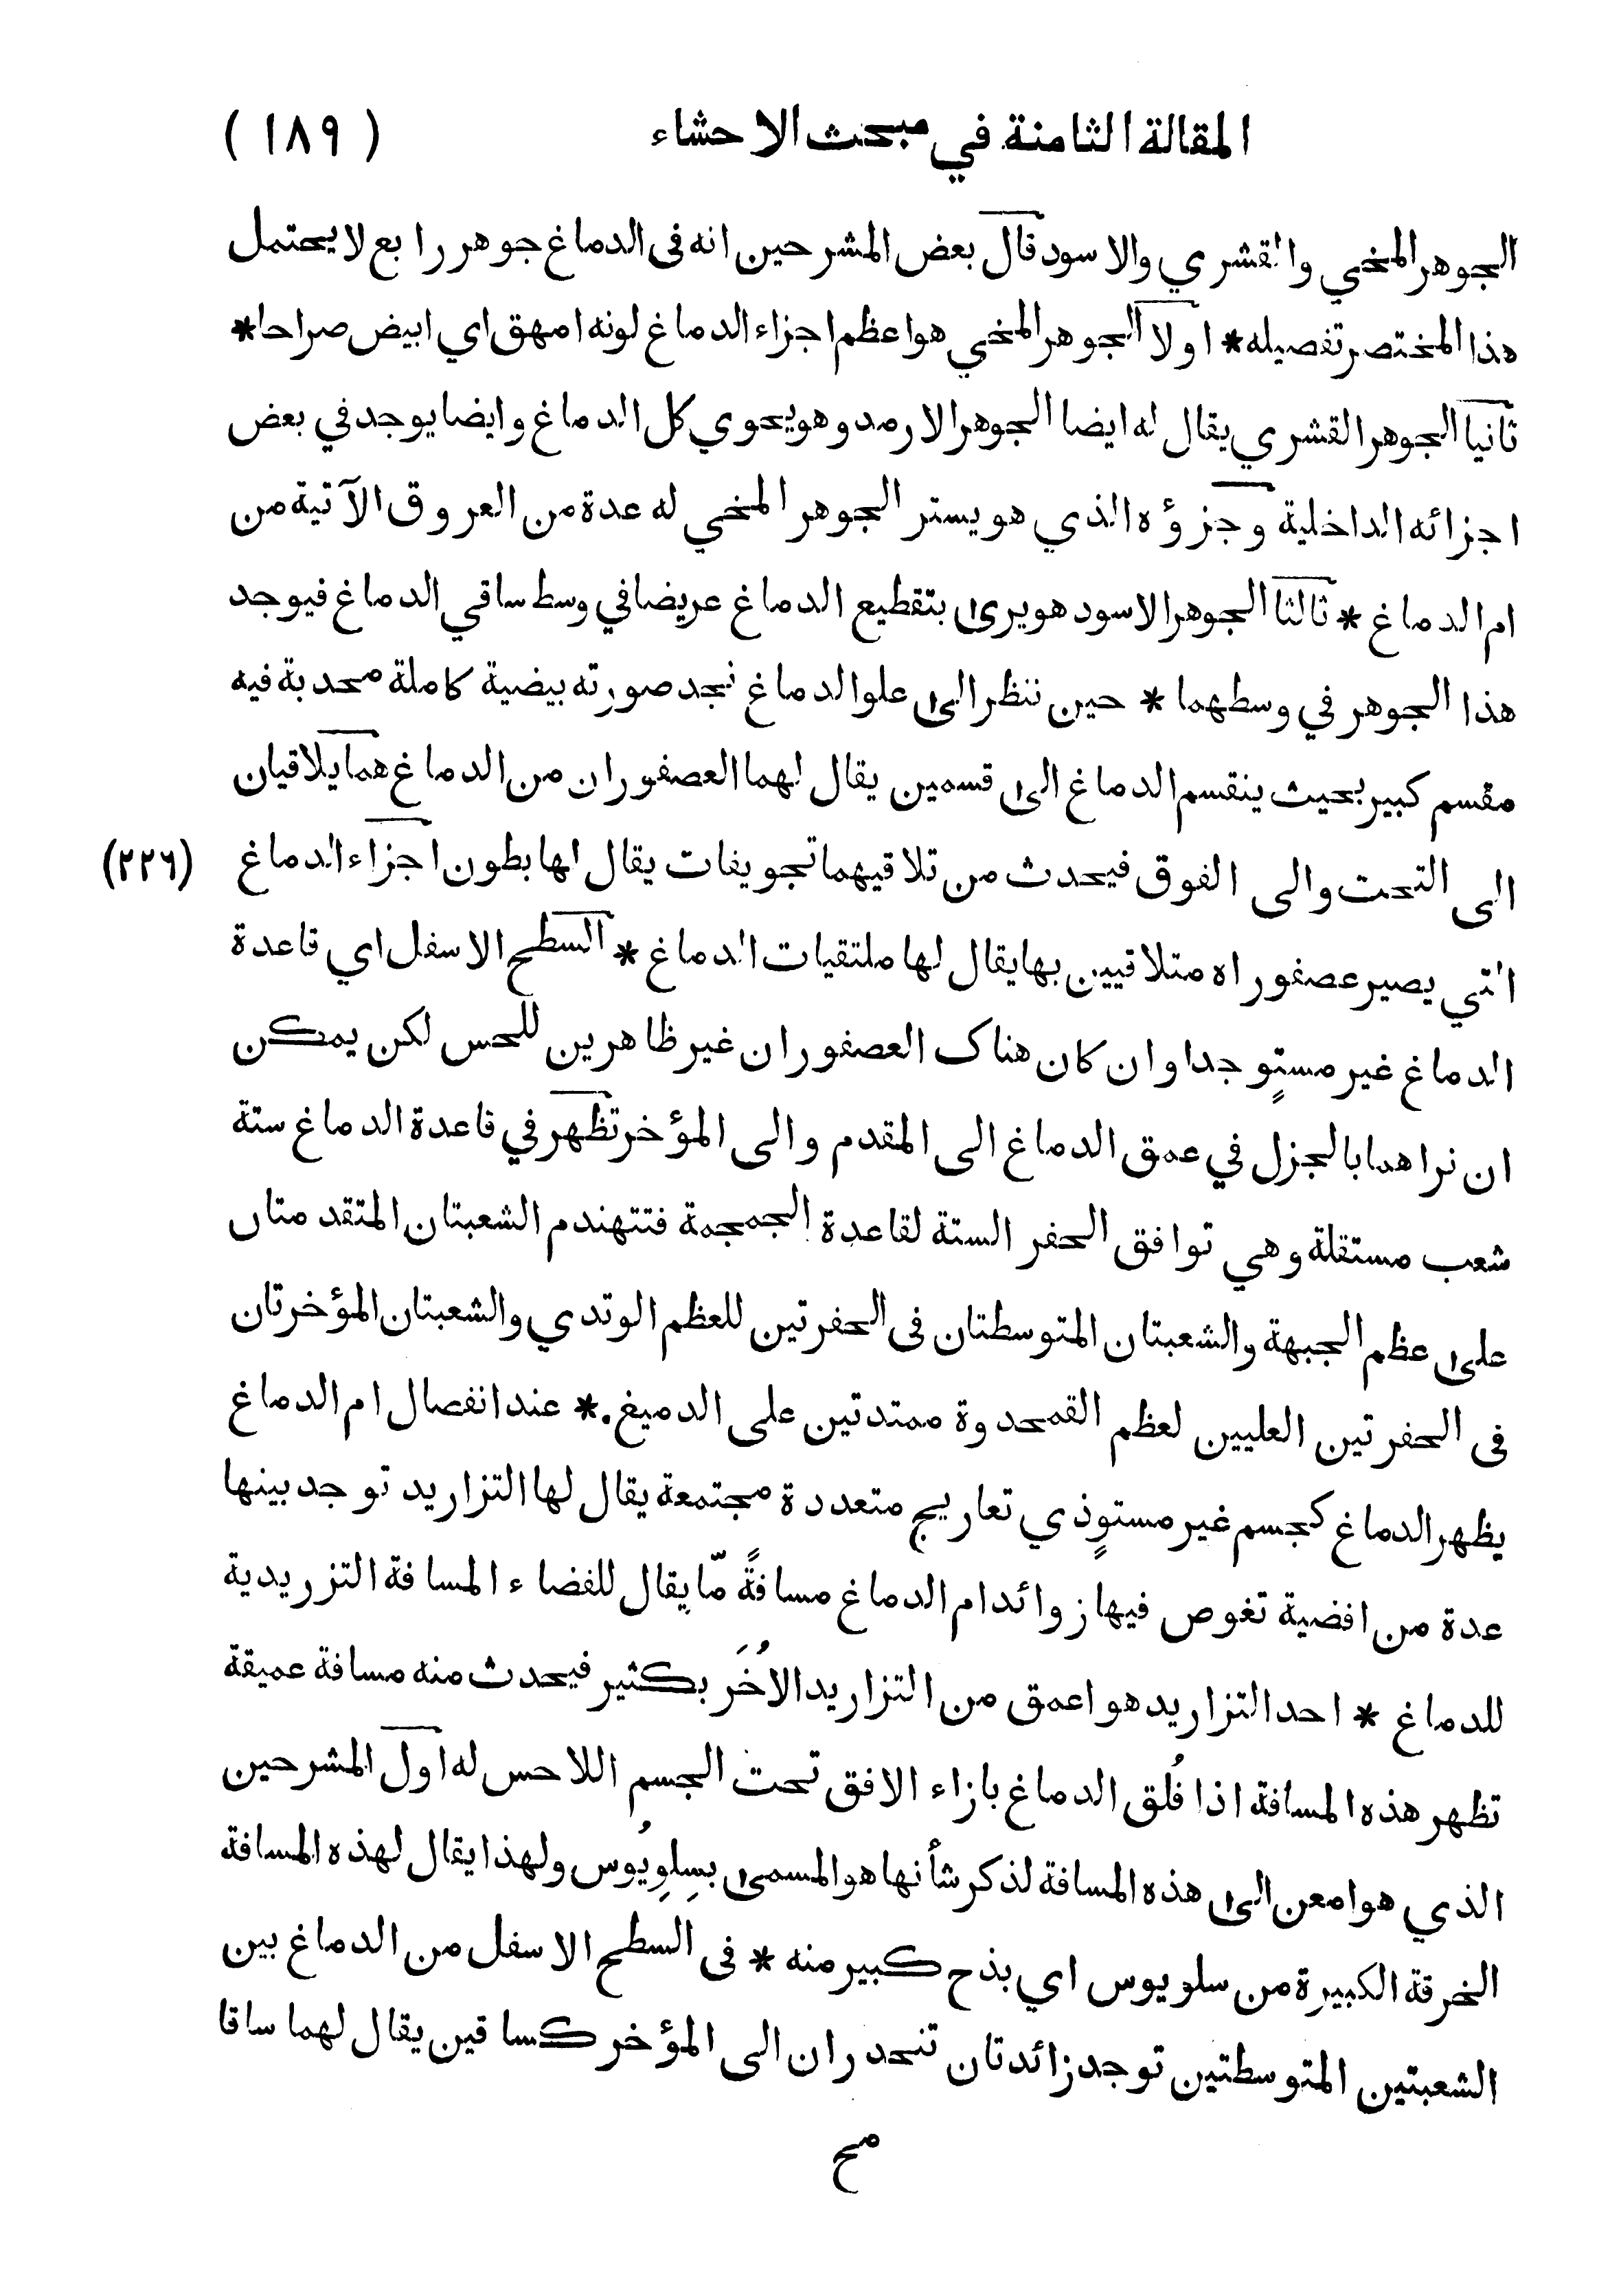 المقالة الثامنة في مبحث الاحشاء (١٨٩)
الجوهر المخي والقشري والاسود قال بعض المشرحين انه فى الدماغ جوهر رابع لا يحتمل
هذا المختصر تفصيله * اولا الجوهر المخي هو اعظم اجزاء الدماغ لونه امهق اي ابيض صراحا *
ثانيا الجوهر القشري يقال له ايضا الجوهر الارمد وهو يحوي كل الدماغ وايضا يوجد في بعض
اجزائه الداخلية وجزؤه الذي هو يستر الجوهر المخي له عدة من العروق الآتية من
ام الدماغ * ثالثا الجوهر الاسود هو يرى بتقطيع الدماغ عريضا في وسط ساقي الدماغ فيوجد
هذا الجوهر في وسطهما * حين ننظر الى علو الدماغ نجد صورته بيضية كاملة محدبة فيه
مقسم كبير بحيث ينقسم الدماغ الى قسمين يقال لهما العصفوران من الدماغ هما يلاقيان
الى التحت والى الفوق فيحدث من تلاقيهما تجويفات يقال لها بطون اجزاء الدماغ (٢٢٦)
التي يصير عصفوراه متلاقيين بها يقال لها ملتقيات الدماغ * السطح الاسفل اي قاعدة
الدماغ غير مستوٍ جدا وان كان هناك العصفوران غير ظاهرين للحس لكن يمكن
ان نراهما بالجزل في عمق الدماغ الى المقدم والى المؤخر تظهر في قاعدة الدماغ ستة
شعب مستقلة وهي توافق الحفر الستة لقاعدة الجمجمة فتتهندم الشعبتان المتقدمتان
على عظم الجبهة والشعبتان المتوسطتان فى الحفرتين للعظم الوتدي والشعبتان المؤخرتان
فى الحفرتين العليين لعظم القمحدوة ممتدتين على الدميغ. * عند انفصال ام الدماغ
يظهر الدماغ كجسم غير مستوٍ ذي تعاريج متعددة مجتمعة يقال لها التزاريد توجد بينها
عدة من افضية تغوص فيها زوائد ام الدماغ مسافةً مّا يقال للفضاء المسافة التزريدية
للدماغ * احد التزاريد هو اعمق من التزاريد الاُخَر بكثير فيحدث منه مسافة عميقة
تظهر هذه المسافة اذا فُلق الدماغ بازاء الافق تحت الجسم اللاحس له اول المشرحين
الذي هو امعن الى هذه المسافة لذكر شأنها هو المسمى بسِلوِيُوس ولهذا يقال لهذه المسافة
الخرقة الكبيرة من سلويوس اي بذح كبير منه * فى السطح الاسفل من الدماغ بين
الشعبتين المتوسطتين توجد زائدتان تنحدران الى المؤخر كساقين يقال لهما ساقا
مح